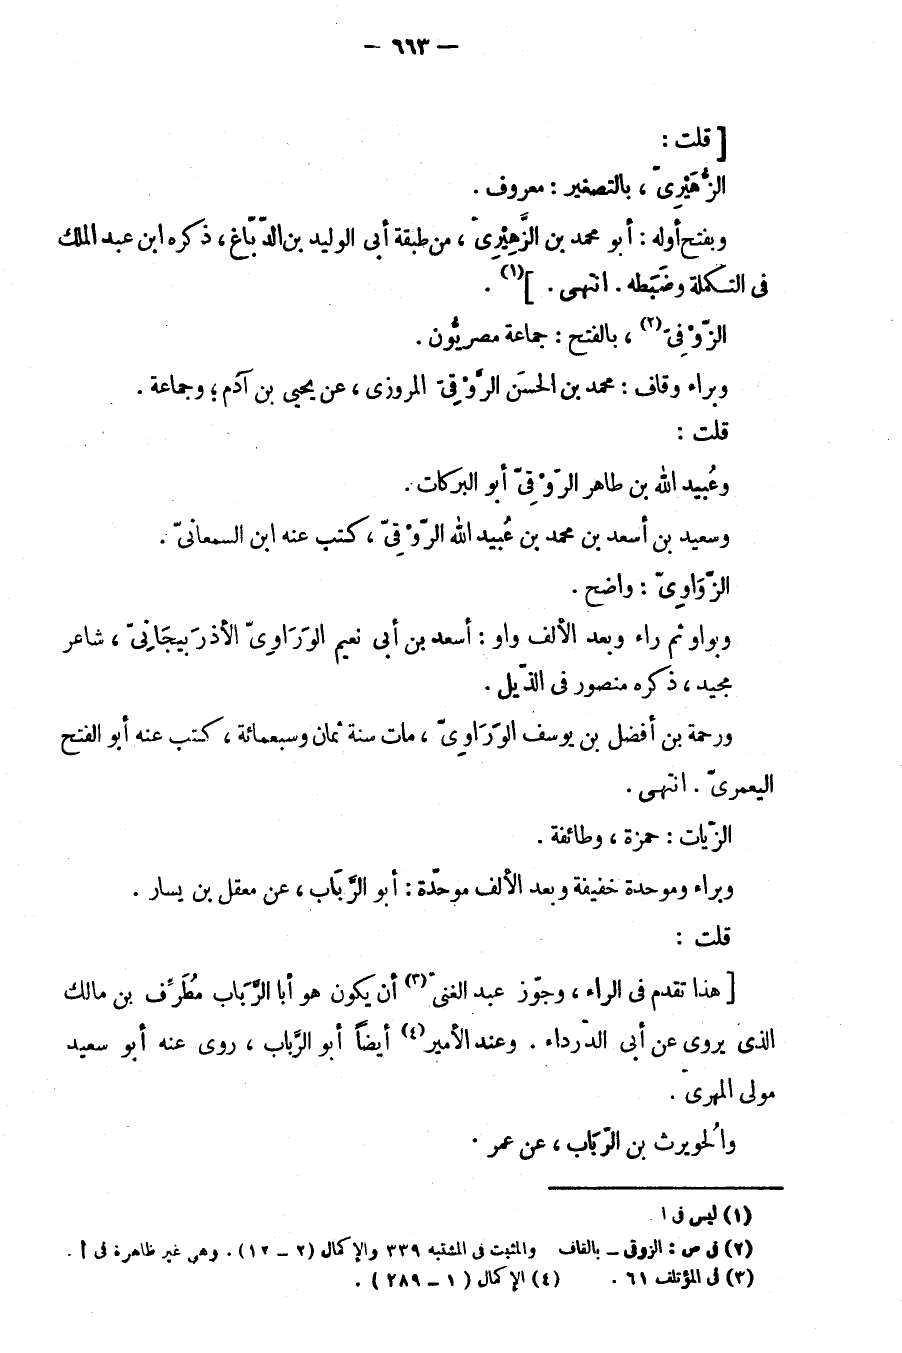 — ٦٦٣ —
[ قلت :
الزُّهَيْرِىّ ، بالتصغير : معروف .
وبفتح أوله : أبو محمد بن الزَّهِيْرِىّ ، من طبقة أبى الوليد بن الدّبّاغ ، ذكره ابن عبد الملك
فى التكملة وضَبَطه . انتهى . ](١) .
الزَّوْفِىّ(٢) ، بالفتح : جماعة مصريُّون .
وبراء وقاف : محمد بن الحسَن الرَّوْقِىّ المروزى ، عن يحيى بن آدَم ؛ وجماعة .
قلت :
وعُبيد الله بن طاهر الرّوْقِىّ أبو البركات .
وسعيد بن أسعد بن محمد بن عُبيد الله الرّوْقِىّ ، كتب عنه ابن السمعانىّ .
الزَّوَاوِىّ : واضح .
وبواو ثم راء وبعد الألف واو : أسعد بن أبى نعيم الوَرَاوِىّ الأذرَبيجَانِىّ ، شاعر
مجيد ، ذكره منصور فى الذّيل .
ورحمة بن أفضل بن يوسف الوَرَاوِىّ ، مات سنة ثمان وسبعمائة ، كتب عنه أبو الفتح
اليعمرىّ . انتهى .
الزيّات : حمزة ، وطائفة .
وبراء وموحدة خفيفة وبعد الألف موحّدة : أبو الرَّبَاب ، عن معقل بن يسار .
قلت :
[ هذا تقدم فى الراء ، وجوّز عبد الغنىّ(٣) أن يكون هو أبا الرَّبَاب مُطَرِّف بن مالك
الذى يروى عن أبى الدّرداء . وعند الأمير(٤) أيضاً أبو الرَّباب ، روى عنه أبو سعيد
مولى المهرىّ .
والُحويرث بن الرّبَاب ، عن عمر .
(١) ليس فى ا
(٢) فى ص : الزوقى – بالقاف والمثبت فى المشتبه ٣٣٩ والإكمال (٢ – ١٢) . وهى غير ظاهرة فى أ .
(٣) فى المؤتلف ٦١ . (٤) الإكمال ( ١ – ٢٨٩ ) .